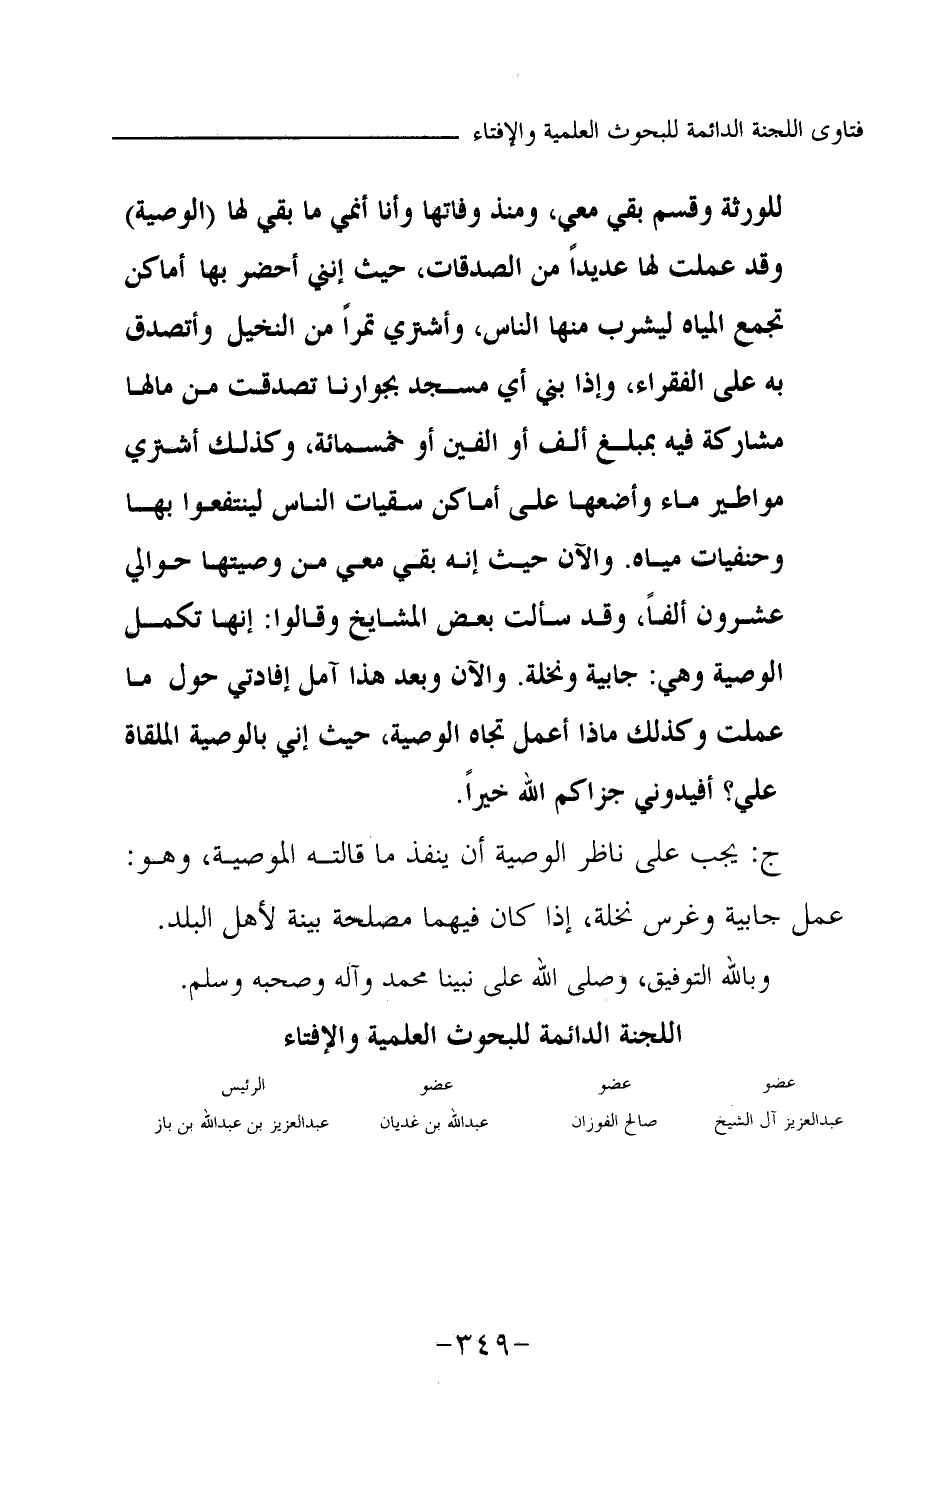 فتاوى اللجنة الدائمة للبحوث العلمية والإفتاء
للورثة وقسم بقي معي، ومنذ وفاتها وأنا أنمي ما بقي لها (الوصية)
وقد عملت لها عديداً من الصدقات، حيث إنني أحضر بها أماكن
تجمع المياه ليشرب منها الناس، وأشتري تمراً من النخيل وأتصدق
به على الفقراء، وإذا بني أي مسجد بجوارنا تصدقت من مالها
مشاركة فيه بمبلغ ألف أو الفين أو خمسمائة، وكذلك أشتري
مواطير ماء وأضعها على أماكن سقيات الناس لينتفعوا بها
وحنفيات مياه. والآن حيث إنه بقي معي من وصيتها حوالي
عشرون ألفاً، وقد سألت بعض المشايخ وقالوا: إنها تكمل
الوصية وهي: جابية ونخلة. والآن وبعد هذا آمل إفادتي حول ما
عملت وكذلك ماذا أعمل تجاه الوصية، حيث إني بالوصية الملقاة
علي؟ أفيدوني جزاكم الله خيراً.
ج: يجب على ناظر الوصية أن ينفذ ما قالته الموصية، وهو:
عمل جابية وغرس نخلة، إذا كان فيهما مصلحة بينة لأهل البلد.
وبالله التوفيق، وصلى الله على نبينا محمد وآله وصحبه وسلم.
اللجنة الدائمة للبحوث العلمية والإفتاء
عضو عضو عضو الرئيس
عبدالعزيز آل الشيخ صالح الفوزان عبدالله بن غديان عبدالعزيز بن عبدالله بن باز
-٣٤٩-